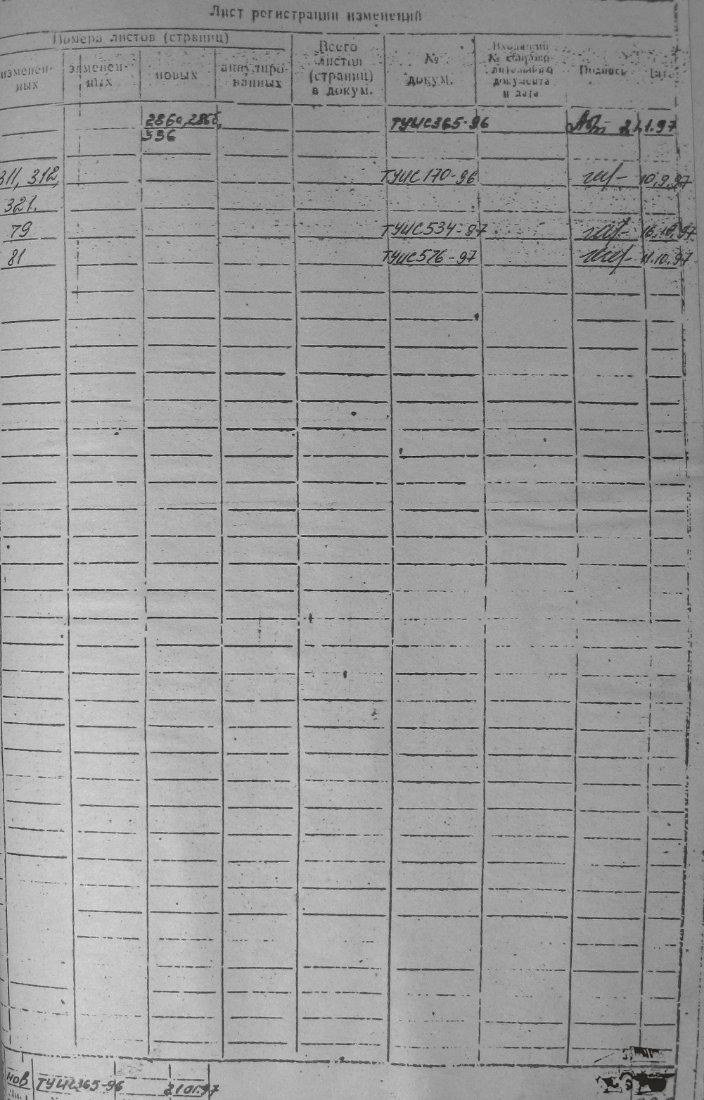 Лист регистрации изменений
Номера листов (страниц)
изменен-
ных
заменен-
ных
новых
аннулиро-
ванных
Всего
листов
(страниц)
в докум.
№
докум.
Входящий
№ сопрово-
дительного
документа
и дата
Подпись
Дата
286а, 286б,
336
ТУИС365-96
21.1.97
311, 312,
321.
ТУИС170-96
10.9.97
79
ТУИС534-97
16.10.97
81
ТУИС576-97
11.10.97
нов ТУИС365-96 21.01.97